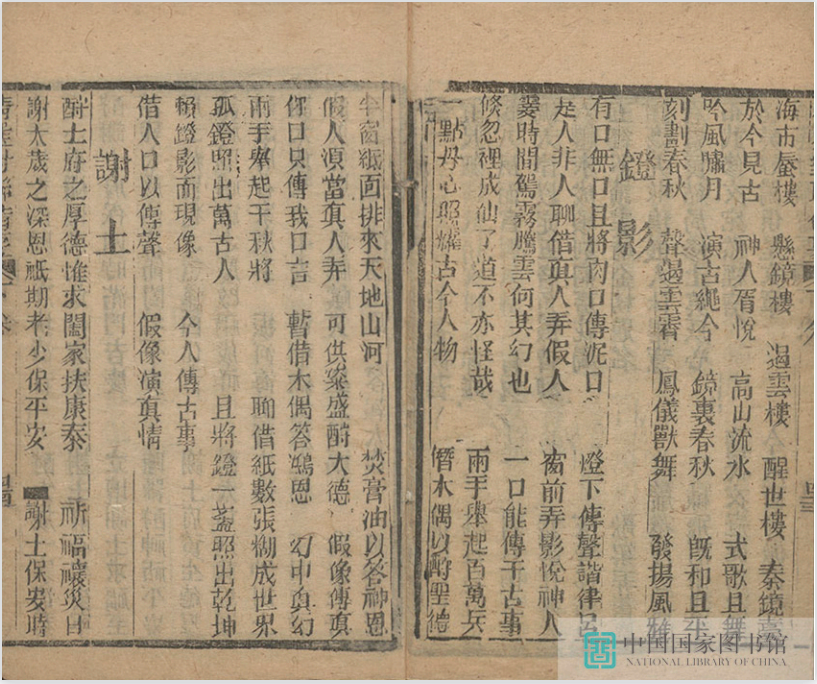 海市蜃樓　懸鏡樓　遏雲樓　醒世樓　秦鏡臺
於今見古　神人胥悅　高山流水　式歌且舞
吟風嘯月　演古繩今　鏡裏春秋　旣和且平
刻劃春秋　聲遏雲霄　鳳儀獸舞　發揚風雅
鐙影
有口無口且將肉口傳泥口　燈下傳聲諧律呂
是人非人聊借真人弄假人　窗前弄影悅神人
霎時間駕霧騰雲何其幻也　一口能傳千古事
倏忽裡成仙了道不亦怪哉　兩手舉起百萬兵
一點丹心照耀古今人物　僭木偶以酧聖德
半窗紙面排來天地山河　焚膏油以答神恩
假人須當真人弄　可供粢盛酧大德　假像傳真
你口只傳我口言　暫借木偶答鴻恩　幻中真幻
兩手舉起千秋將　聊借紙數張糊成世界
孤鐙照出萬古人　且將鐙一盞照出乾坤
賴鐙影而現像　今人傳古事
借人口以傳聲　假像演真情
謝土
酧土府之厚德惟求闔家扶康泰　祈福禳災日
謝太歲之深恩祇期老少保平安　謝土保安時